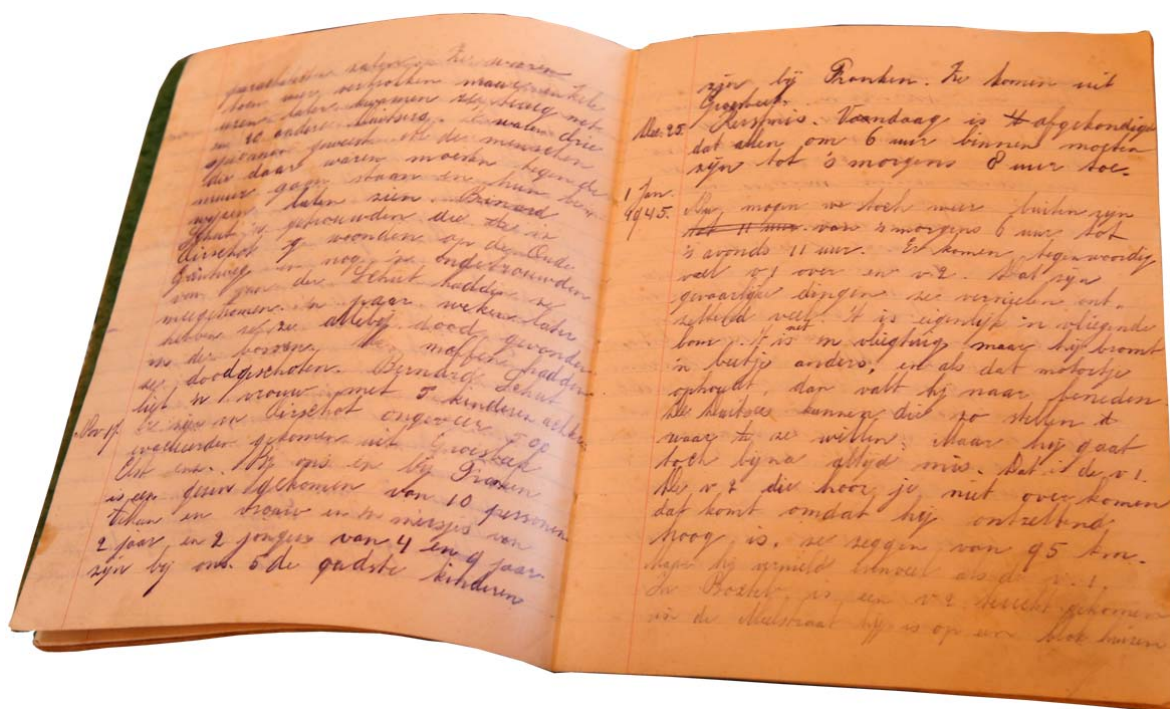 parachutisten zaten. Ze waren
toen weer vertrokken maar enkele
uren later kwamen ze terug met
20 andere Duitsers. Er waren drie
geweest. Al de menschen
die daar waren moesten tegen de
muur gaan staan en hun bewijzen
laten zien. Bernard
Schut is gebonden die is
Oirschot woonden op de Oude
Grintweg en nog 'n ondertrouwden
van der Schut hadden ze
meegenomen. 'n paar weken later
hebben ze ze allebij dood gevonden
in de bossen. De moffen hadden
ze doodgeschoten. Bernard Schut
ligt 'n vrouw met 5 kinderen achter.
Nov 17. Er zijn in Oirschot ongeveer 500
evacueerden gekomen uit Groesbeek
Elst enz. Bij ons en bij Franken
is een gezin gekomen van 10 personen
en vrouw en 'n meisje van
2 jaar en 2 jongens van 4 en 9 jaar
zijn bij ons. 5 de oudste kinderen
zijn bij Franken. Ze komen uit
Groesbeek.
Dec. 25. Kerstmis. Vandaag is 't afgekondigd
dat allen om 6 uur binnen moeten
zijn tot 's morgens 8 uur toe.
1 Jan.
1945. Nu mogen we toch weer buiten zijn
tot 11 uur van smorgens 6 uur tot
's avonds 11 uur. Er komen tegenwoordig
veel v1 over en v2. Dat zijn
gevaarlijke dingen ze vernielen ont-
zettend veel. 't is eigenlijk 'n vliegende
bom. 't is net 'n vliegtuig maar hij bromt
'n beetje anders, en als dat motortje
ophoudt, dan valt hij naar beneden
De Duitsers kunnen die zo stellen
waar ze willen. Maar hij gaat
toch bijna altijd mis. Dat is de v1.
De v2 die hoor je niet overkomen
dat komt omdat hij ontzettend
hoog is, ze zeggen van 95 km.
Maar hij vernield evenveel als de v.1.
In Boxtel is een v2 terecht gekomen
in de Molstraat hij is op een blok huizen